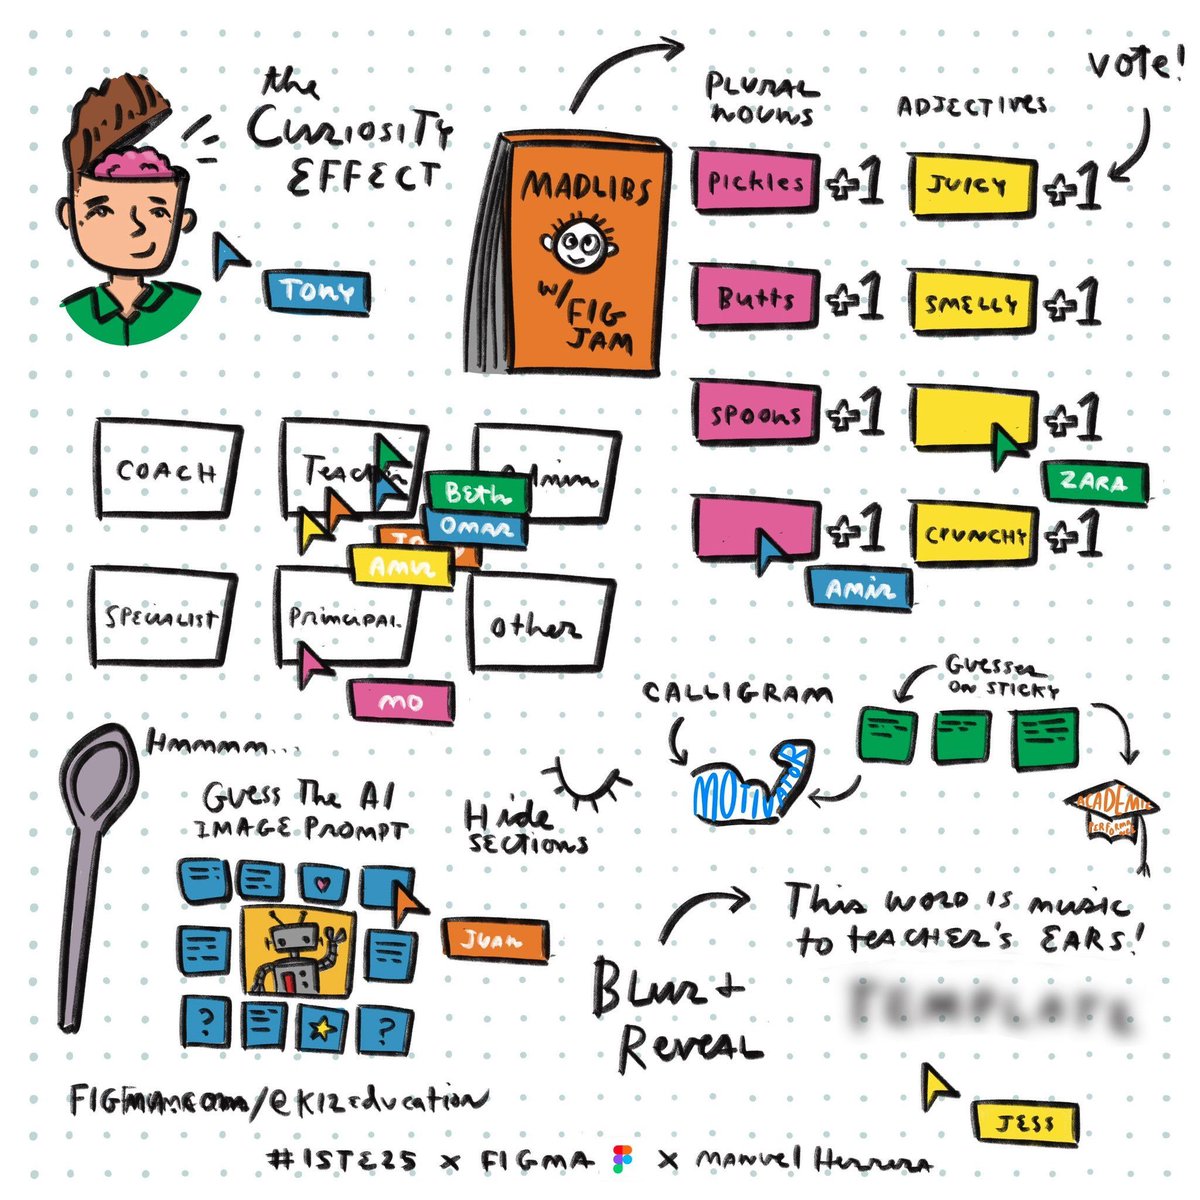 the
CURIOSITY
EFFECT
TONY
MADLIBS
W/ FIG
JAM
PLURAL
NOUNS
ADJECTIVES
VOTE!
PICKLES
+1
JUICY
+1
BUTTS
+1
SMELLY
+1
SPOONS
+1
+1
ZARA
+1
CRUNCHY
+1
AMIR
COACH
TEACHER
Admin
BETH
OMAR
AMIR
SPECIALIST
PRINCIPAL
other
MO
Hmmmm...
GUESS THE AI
IMAGE PROMPT
JUAN
?
?
Hide
SECTIONS
CALLIGRAM
MOTIVATOR
GUESSES
ON STICKY
ACADEMIC
PERFORMANCE
BLUR +
REVEAL
THIS WORD IS MUSIC
to TEACHER'S EARS!
TEMPLATE
JESS
FIGMA.COM/@K12EDUCATION
#ISTE25 X FIGMA X MANUEL HERRERA